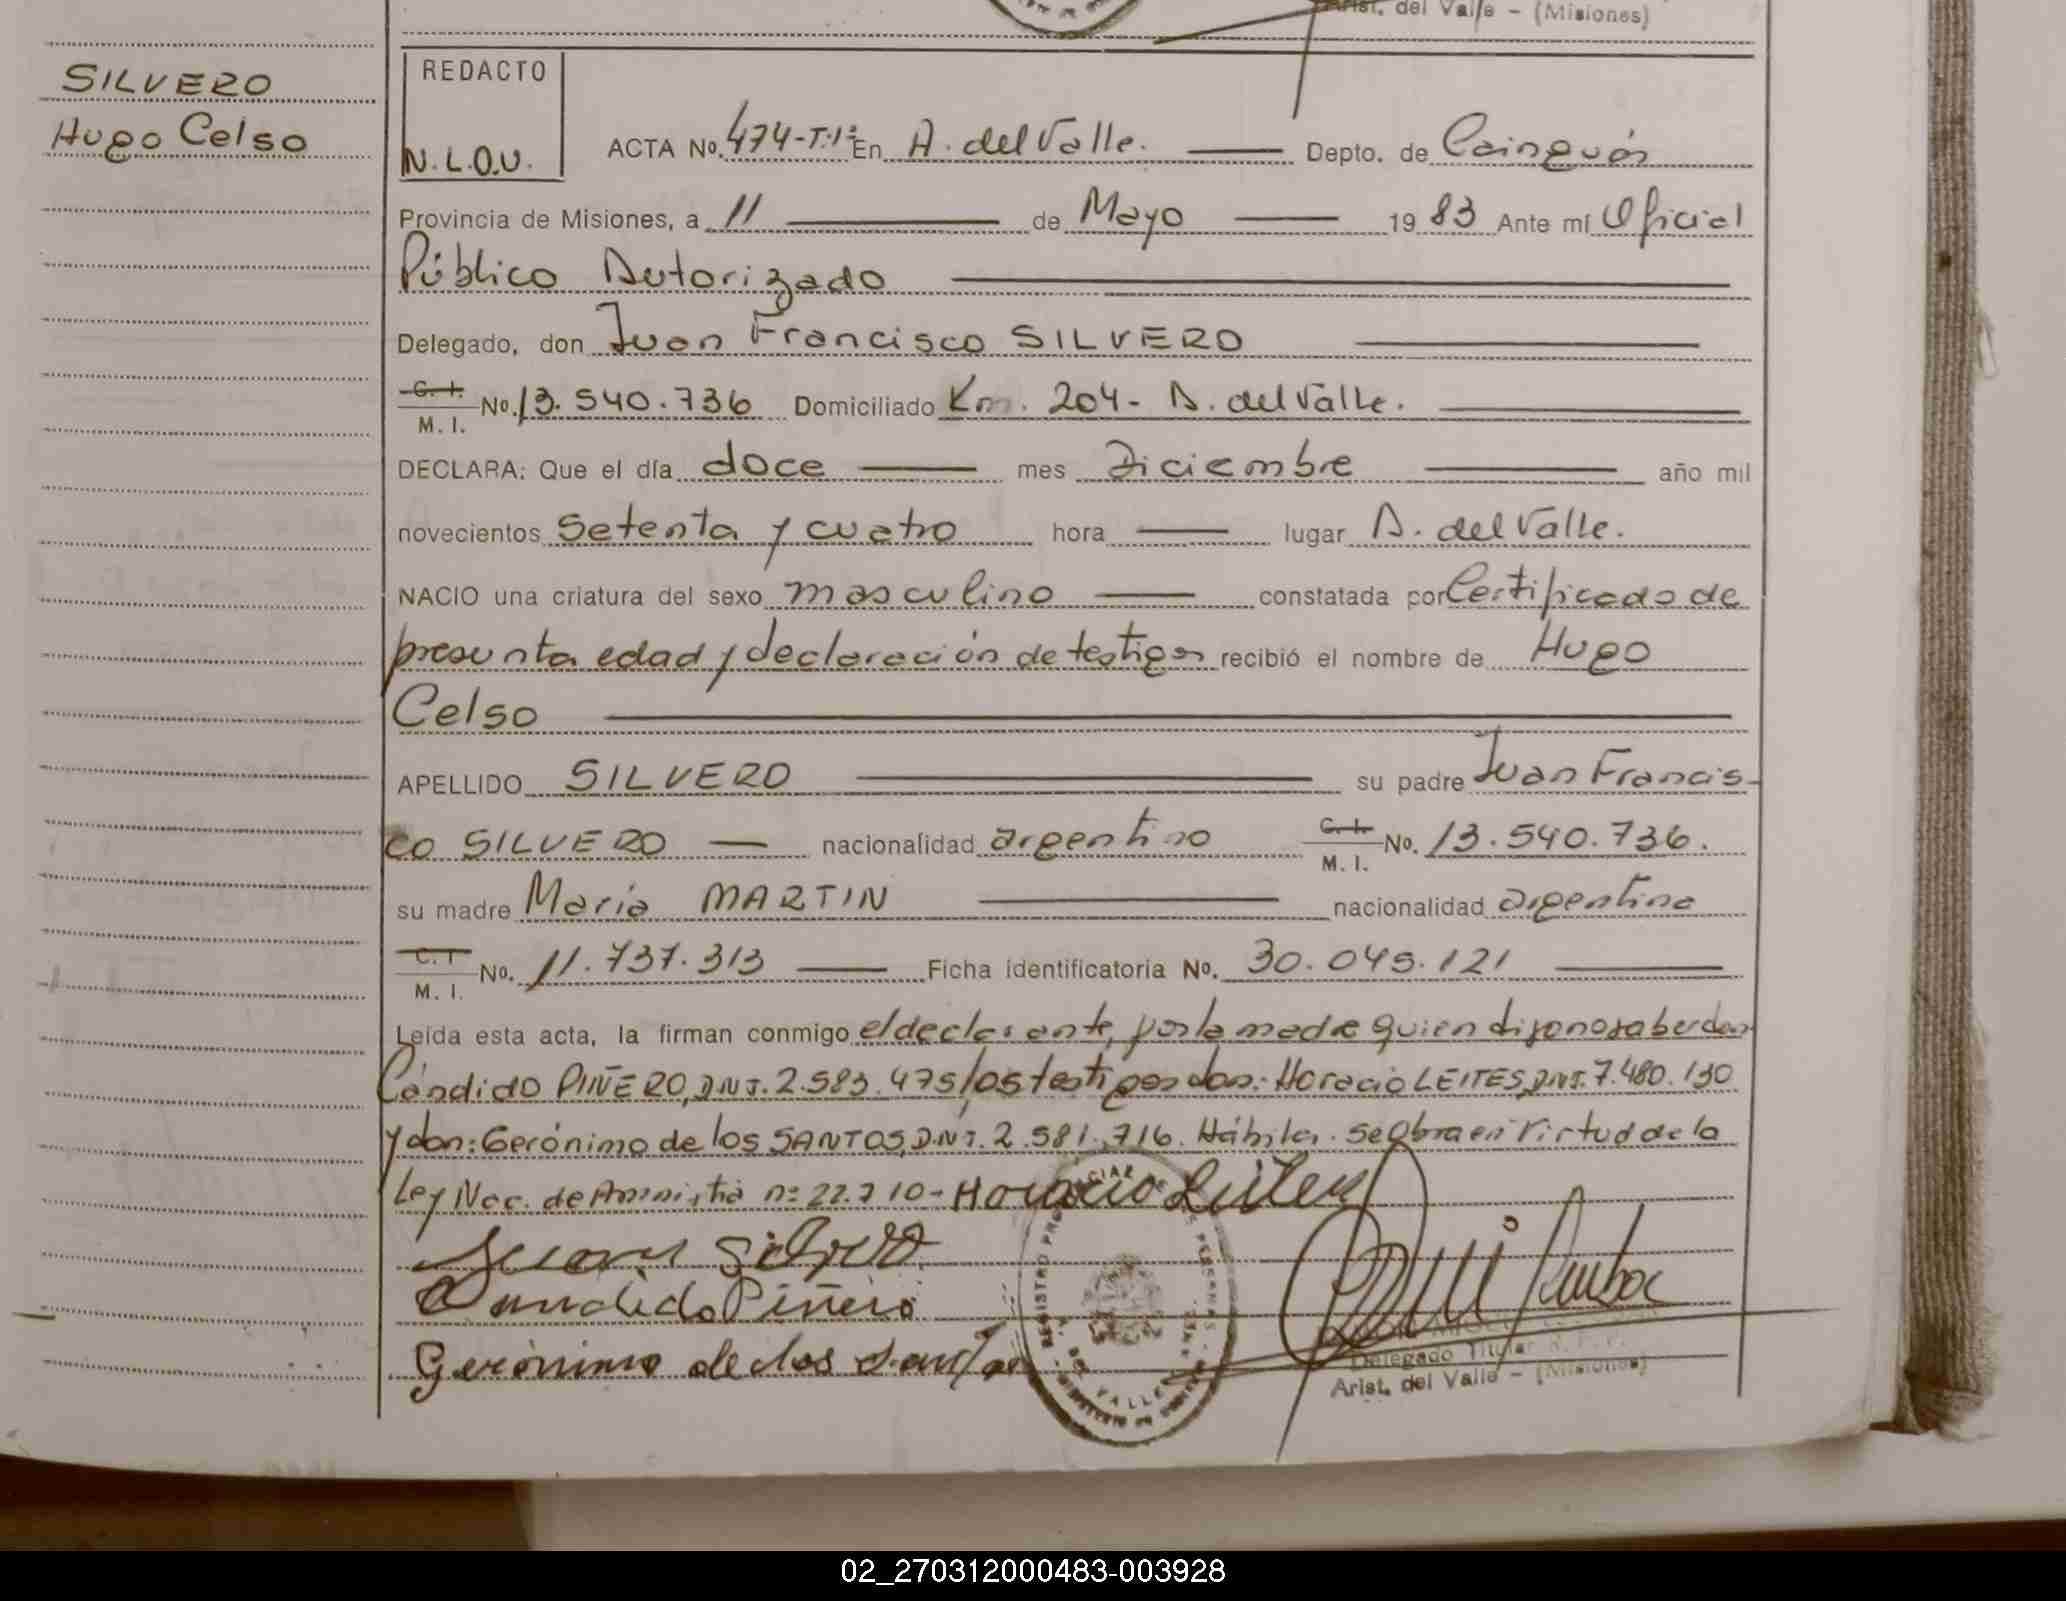 Arist. del Valle - (Misiones)
SILVERO
Hugo Celso
REDACTO
N.L.O.V.
ACTA No. 474-T:1º En A. del Valle. Depto. de Cainguás
Provincia de Misiones, a 11 de Mayo 1983 Ante mí Oficial
Público Autorizado
Delegado, don Juan Francisco SILVERO
C. I. M. I. No. 13.540.736 Domiciliado Km. 204- A. del Valle.
DECLARA: Que el día doce mes Diciembre año mil
novecientos setenta y cuatro hora lugar A. del Valle.
NACIO una criatura del sexo masculino constatada por Certificado de
presunta edad y declaración de testigos recibió el nombre de Hugo
Celso
APELLIDO SILVERO su padre Juan Francis-
co SILVERO nacionalidad argentino C. I. M. I. No. 13.540.736.
su madre María MARTIN nacionalidad argentina
C. I M. I. No. 11.737.313 Ficha identificatoria No. 30.045.121
Leída esta acta, la firman conmigo el declarante, por la madre quien dijo no saber don
Cándido PIÑERO, DNI. 2.583.475 los testigos don: Horacio LEITES, DNI. 7.480.130
y don: Gerónimo de los SANTOS, DNI. 2.581.716. Hábiles. Se Obra en Virtud de la
Ley Nac. de Amnistia nº 22.710- Horacio Leites
Juan Silvero
Candido Piñero
Gerónimo de los Santos
REGISTRO PROVINCIAL DE LAS PERSONAS
DEL VALLE
Delegado Titular R. P. P.
Arist. del Valle - (Misiones)
02_270312000483-003928